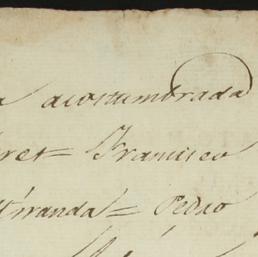 a acostumbrada
ret= Francisco
Miranda= Pedro